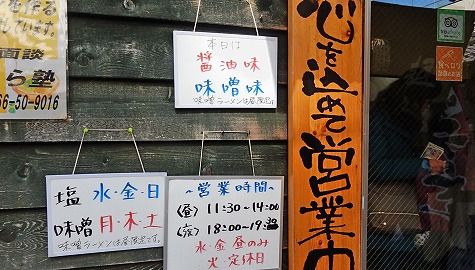 面談
ら塾
66-50-9016
本日は
醤油味
味噌味
味噌ラーメンは昼限定です。
塩 水・金・日
味噌 月・木・土
味噌ラーメンは昼限定です。
~営業時間~
(昼) 11:30~14:00
(夜) 18:00~19:30
水・金 昼のみ
火・定休日
心を込めて営業中
食べログ